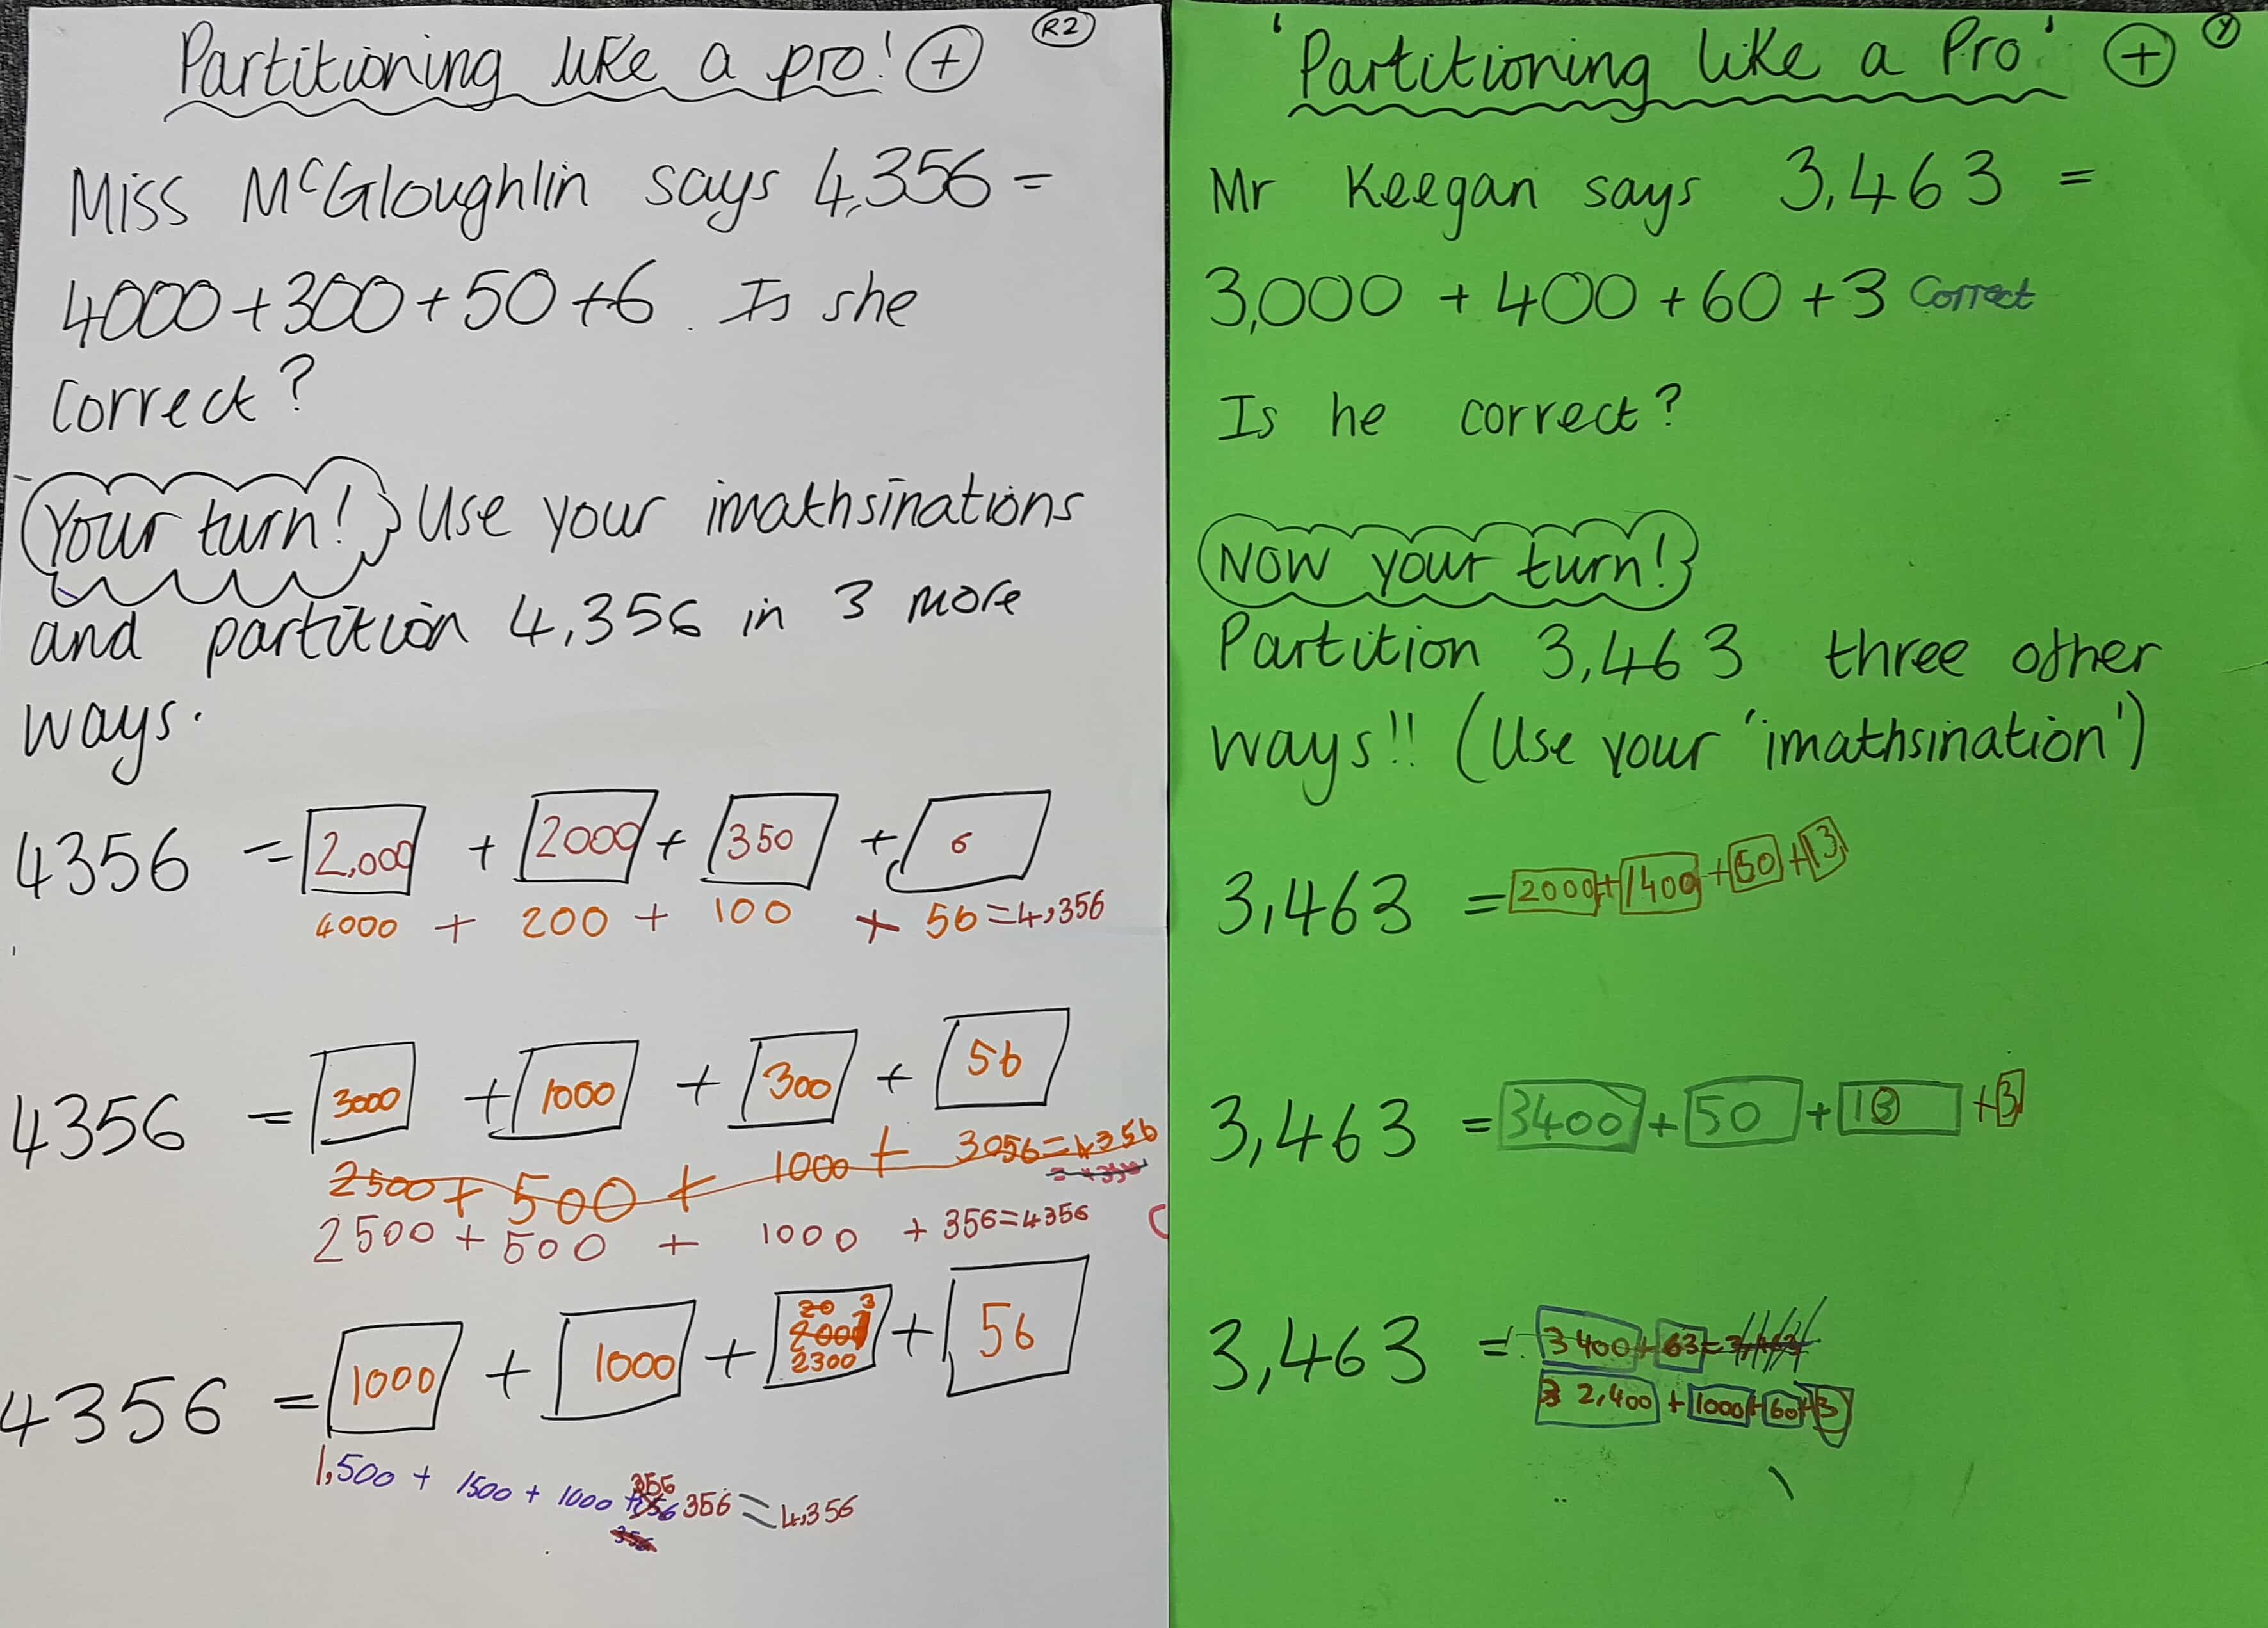 Partitioning like a pro! + R2
Miss McGloughlin says 4,356 =
4000 + 300 + 50 + 6. Is she
correct?
Your turn! Use your imathsinations
and partition 4,356 in 3 more
ways.
4356 = 2,000 + 2000 + 350 + 6
4000 + 200 + 100 + 56 = 4,356
4356 = 3000 + 1000 + 300 + 56
2500 + 500 + 1000 + 3056 = 4356
2500 + 500 + 1000 + 356 = 4356
4356 = 1000 + 1000 + 2300 + 56
1,500 + 1500 + 1000 + 356 = 4,356
'Partitioning like a Pro' + Y
Mr Keegan says 3,463 =
3,000 + 400 + 60 + 3 Correct
Is he correct?
Now your turn!
Partition 3,463 three other
ways!! (Use your 'imathsination')
3,463 = 2000 + 1400 + 50 + 13
3,463 = 3400 + 50 + 10 + 3
3,463 = 3400 + 63 = 3,463
2,400 + 1000 + 60 + 3